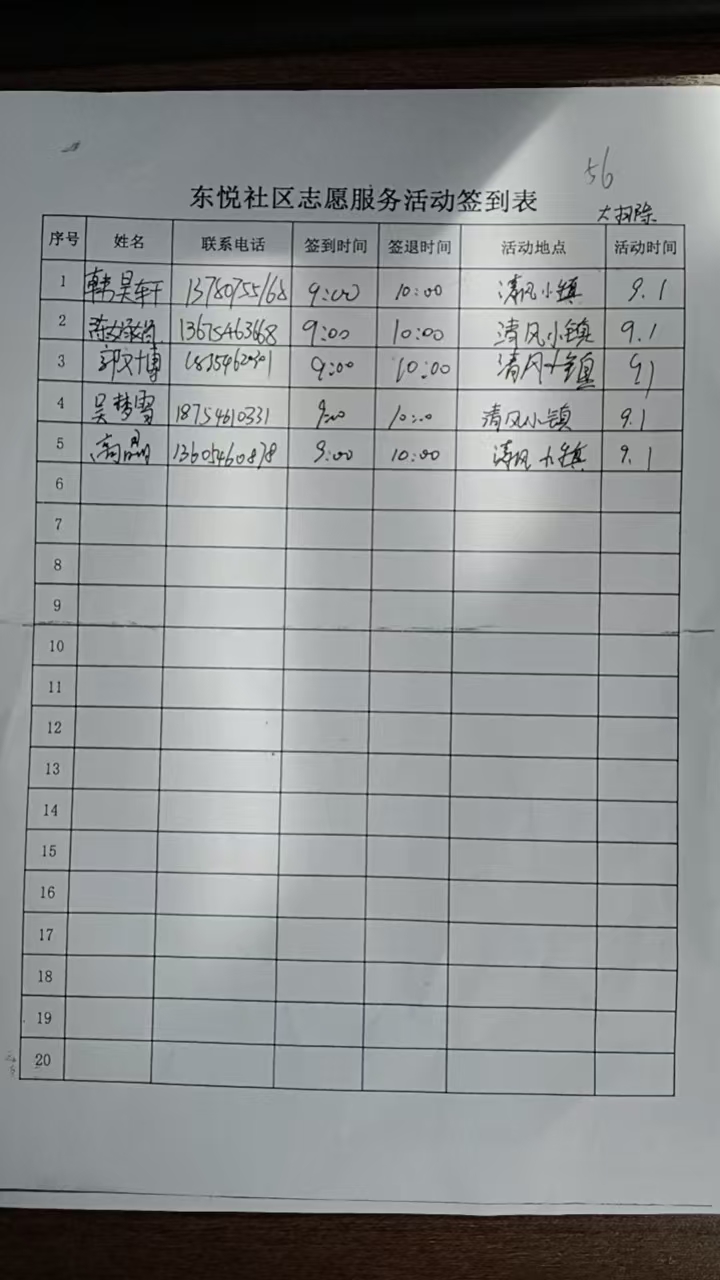 56
东悦社区志愿服务活动签到表
大扫除
序号 姓名 联系电话 签到时间 签退时间 活动地点 活动时间
1 韩昊轩 13780755168 9:00 10:00 清风小镇 9.1
2 13675463668 9:00 10:00 清风小镇 9.1
3 郭文博 9:00 10:00 清风小镇 9.1
4 吴梦雪 18754610331 9:00 10:00 清风小镇 9.1
5 高晶 13605460878 9:00 10:00 清风小镇 9.1
6
7
8
9
10
11
12
13
14
15
16
17
18
19
20